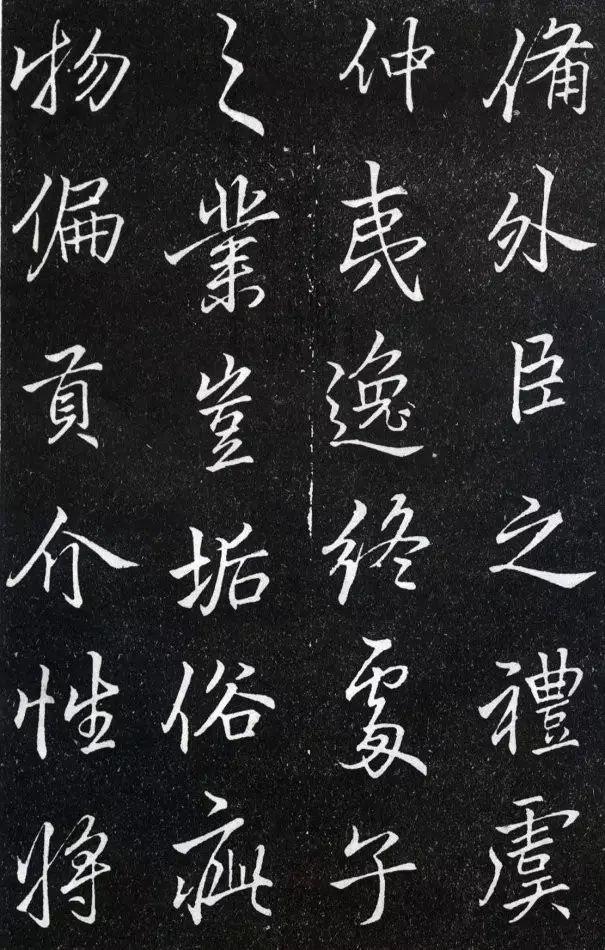 備外臣之禮虞
仲夷逸終處子
之業豈垢俗疵
物偏貢介性将